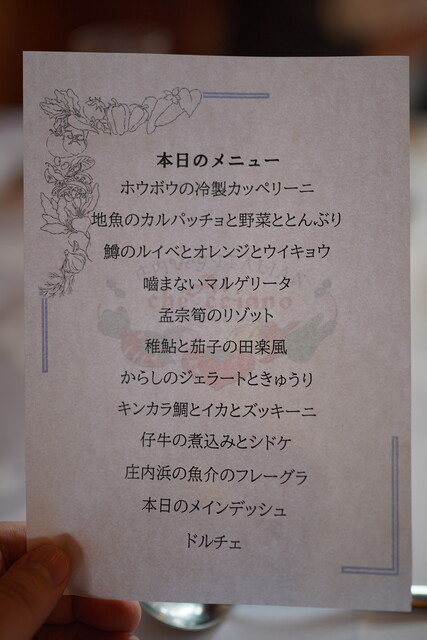 本日のメニュー
ホウボウの冷製カッペリーニ
地魚のカルパッチョと野菜ととんぶり
鱒のルイベとオレンジとウイキョウ
噛まないマルゲリータ
孟宗筍のリゾット
稚鮎と茄子の田楽風
からしのジェラートときゅうり
キンカラ鯛とイカとズッキーニ
仔牛の煮込みとシドケ
庄内浜の魚介のフレーグラ
本日のメインデッシュ
ドルチェ